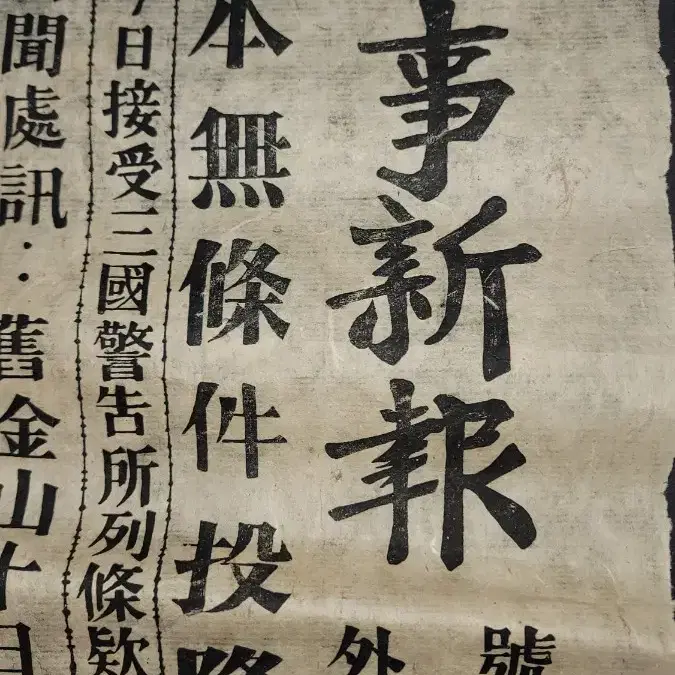 事新報
號外
本無條件投降
日接受三國警告所列條欵
聞處訊：舊金山十日